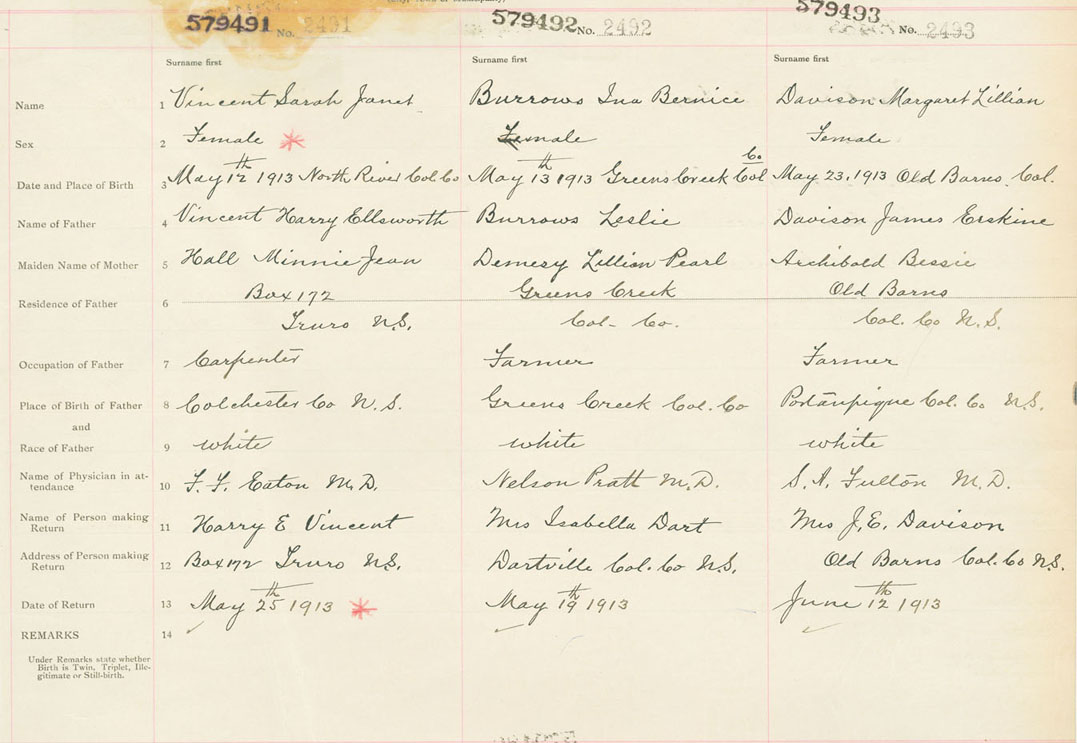 579491 No. 2491 579492 No. 2492 579493 No. 2493
Surname first Surname first Surname first
Name 1 Vincent Sarah Janet Burrows Ina Bernice Davison Margaret Lillian
Sex 2 Female * Female Female
Co.
Date and Place of Birth 3 May 12th 1913 North River Col. Co May 13th 1913 Greens Creek Col May 23, 1913 Old Barns Col.
Name of Father 4 Vincent Harry Ellsworth Burrows Leslie Davison James Erskine
Maiden Name of Mother 5 Hall Minnie Jean Demesy Lillian Pearl Archibald Bessie
Residence of Father 6 Box 172 Greens Creek Old Barns
Truro N.S. Col. Co. Col. Co N.S.
Occupation of Father 7 Carpenter Farmer Farmer
Place of Birth of Father 8 Colchester Co N.S. Greens Creek Col. Co Portaupique Col. Co N.S.
and
Race of Father 9 white white white
Name of Physician in at-
tendance 10 F. F. Eaton M.D. Nelson Pratt M.D. S. A. Fulton M.D.
Name of Person making
Return 11 Harry E Vincent Mrs Isabella Dart Mrs J. E. Davison
Address of Person making
Return 12 Box 172 Truro N.S. Dartville Col. Co N.S. Old Barns Col. Co N.S.
Date of Return 13 May 25th 1913 * May 19th 1913 June 12th 1913
REMARKS 14
Under Remarks state whether
Birth is Twin, Triplet, Ille-
gitimate or Still-birth.